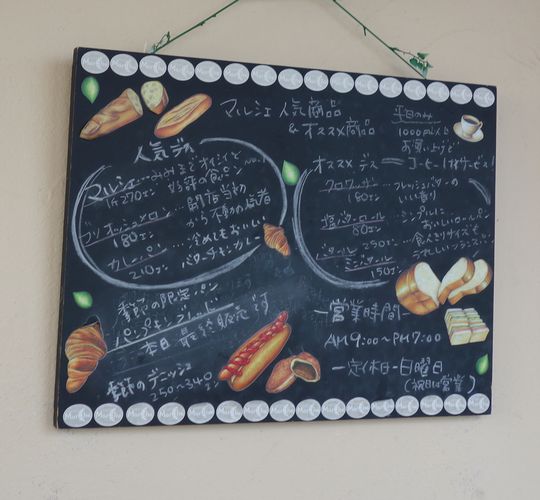 マルシェ人気商品
&オススメ商品
平日のみ
1000円以上
お買い上げで
コーヒー1杯サービス!
人気デス
マルシェ…みみまでオイシイと
1斤270エン 好評の食パン
No.1
ブリオッシュメロン…開店当初
180エン から不動の人気者
カレーパン…冷めてもおいしい
210エン バターチキンカレー
オススメデス
クロワッサン…フレッシュバターの
180エン いい香り
塩バターロール…シンプルに
80エン おいしいロールパン
バタール 250エン…食べきりサイズも
ミニバタール うれしいフランス…
150エン
季節の限定パン
パンプキンブレッド
本日最終販売です
季節のデニッシュ
250~340エン
営業時間
AM9:00~PM7:00
定休日-日曜日
(祝日は営業)